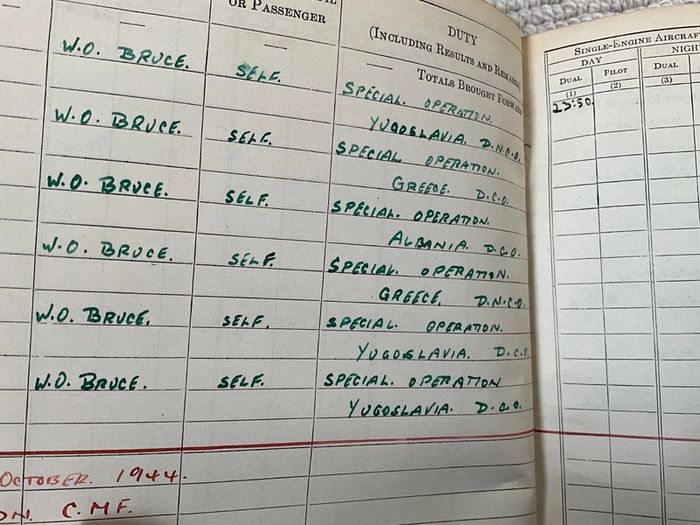 OR PASSENGER
DUTY
(INCLUDING RESULTS AND REMARKS)
— — TOTALS BROUGHT FORWARD
W.O. BRUCE. SELF. SPECIAL. OPERATION.
YUGOSLAVIA. D.N.C.O.
W.O. BRUCE. SELF. SPECIAL OPERATION.
GREECE. D.C.O.
W.O. BRUCE. SELF. SPECIAL. OPERATION.
ALBANIA. D.C.O.
W.O. BRUCE. SELF. SPECIAL. OPERATION.
GREECE. D.N.C.O.
W.O. BRUCE. SELF. SPECIAL. OPERATION.
YUGOSLAVIA. D.C.O.
W.O. BRUCE. SELF. SPECIAL. OPERATION
YUGOSLAVIA. D.C.O.
OCTOBER. 1944.
C.M.F.
SINGLE-ENGINE AIRCRAFT
DAY NIGHT
DUAL PILOT DUAL
(1) (2) (3)
23.50